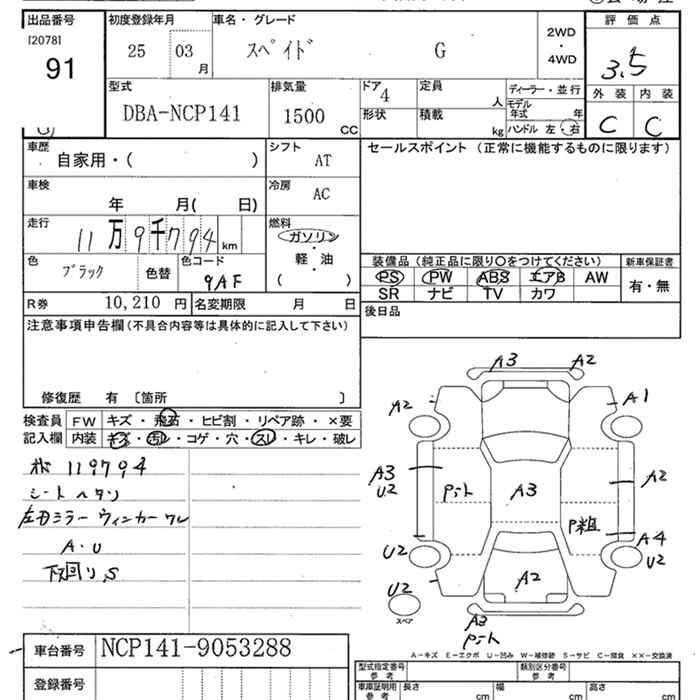 出品番号 初度登録年月 車名・グレード 評価点
[2078]
91
25 03 月 スペイド G 2WD・4WD 3.5
外装 内装
C C
型式 排気量 ドア 定員 ディーラー・並行
DBA-NCP141 1500 CC 4 人 モデル年式 年
形状 積載 kg ハンドル 左・右
車歴 シフト セールスポイント (正常に機能するものに限ります)
自家用・( ) AT
車検 冷房
年 月( 日) AC
走行 燃料
11万9千794km ガソリン・軽・油
( )
色 色コード
ブラック 色替 9AF
装備品 (純正品に限り○をつけてください) 新車保証書
PS PW ABS エアB AW 有・無
SR ナビ TV カワ
R券 10,210 円 名変期限 月 日 後日品
注意事項申告欄(不具合内容等は具体的に記入して下さい)
修復歴 有 〔箇所 〕
検査員 FW キズ・飛石・ヒビ割・リペア跡・×要
記入欄 内装 キズ・汚レ・コゲ・穴・スレ・キレ・破レ
119794
シートヘタリ
左右ミラーウィンカーワレ
A・U
下回り、S
A3 A2
A2 A1
A3 U2 Pシト A3 P粗 A2
A4
U2 U2
A2
U2
スペア
A3
Pシト
A-キズ E-エクボ U-凹み W-補修跡 S-サビ C-腐食 ××-交換済
車台番号 NCP141-9053288
登録番号
型式指定番号 参考 類別区分番号 参考
車庫証明用 参考 長さ cm 幅 cm 高さ cm